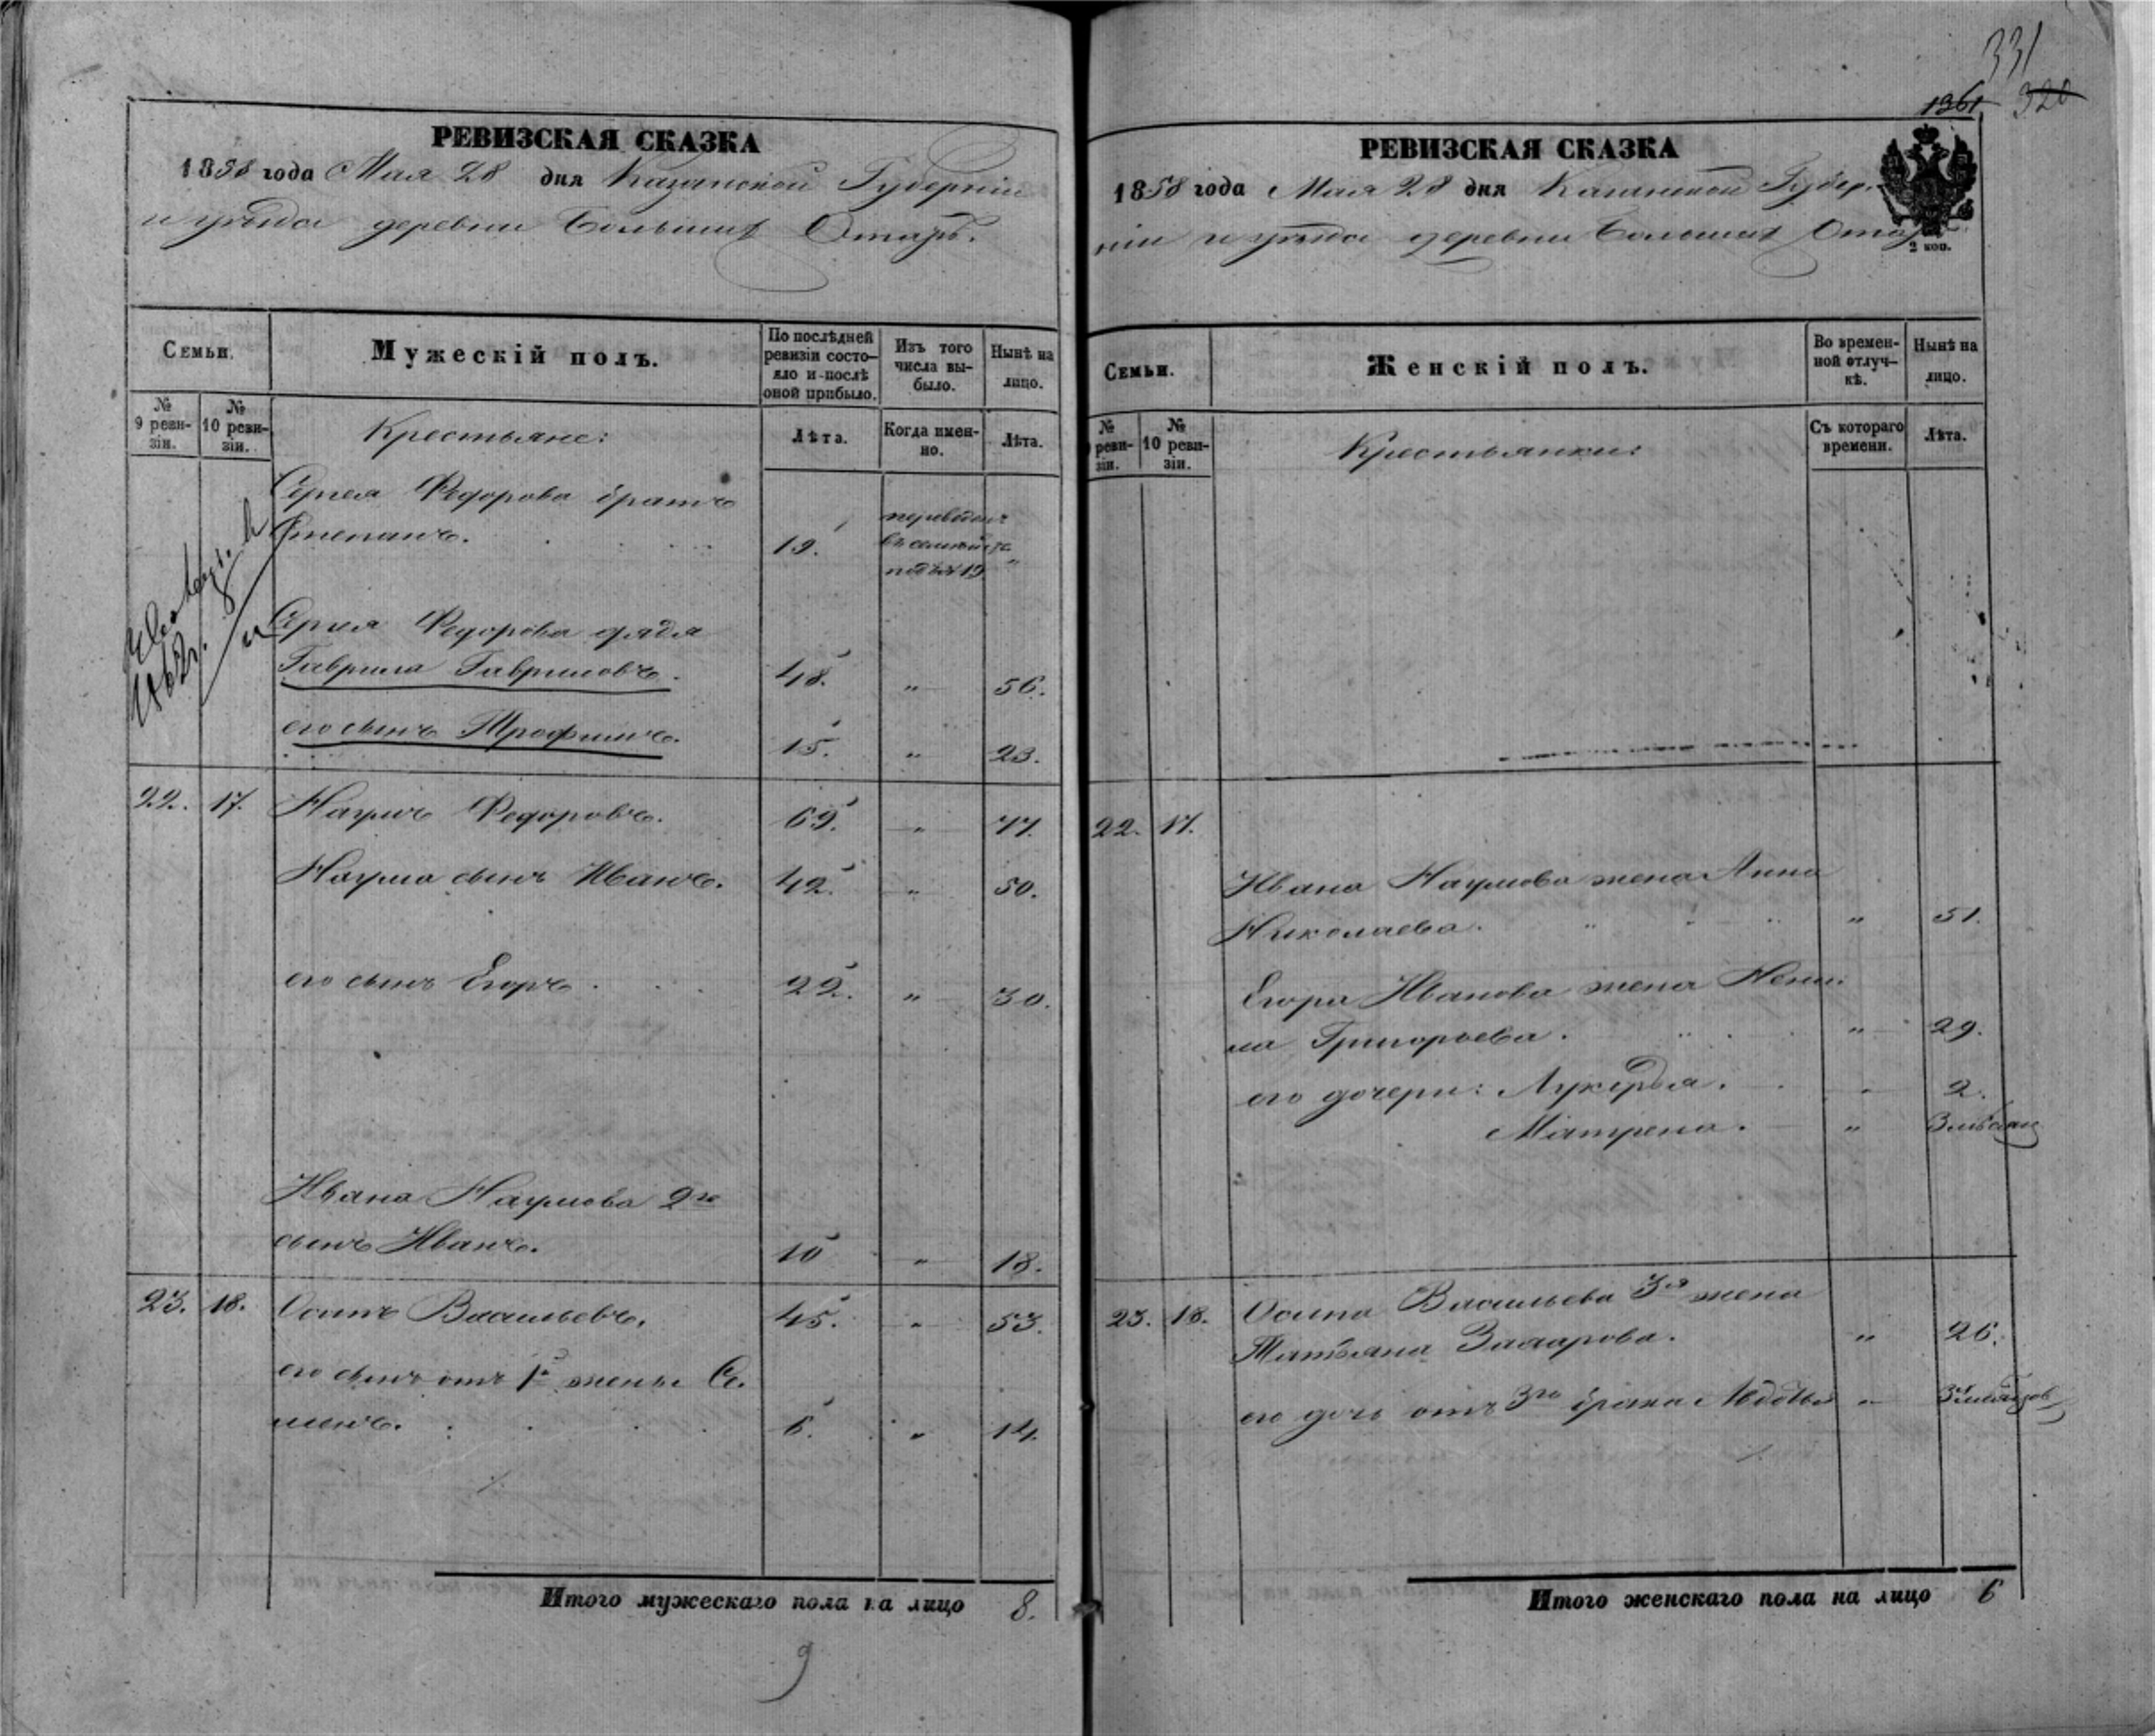 331
1361 320
РЕВИЗСКАЯ СКАЗКА
1858 года Мая 28 дня Казанской Губерніи
и уѣзда деревни Большихъ Отаръ.
Семьи.
Мужескій полъ.
По послѣдней ревизіи состояло и послѣ оной прибыло.
Изъ того числа выбыло.
Нынѣ на лицо.
№ 9 ревизіи.
№ 10 ревизіи.
Крестьяне:
Лѣта.
Когда именно.
Лѣта.
Сергея Федорова братъ
Степанъ. 19. переведенъ въ семейство подъ № 19 "
1862 г.
Сергея Федорова дядя
Гаврила Гавриловъ. 48. " 56.
его сынъ Трофимъ. 15. " 23.
22. 17. Наумъ Федоровъ. 69. " 77.
Наума сынъ Иванъ. 42. " 50.
его сынъ Егоръ. 22. " 30.
Ивана Наумова 2й
сынъ Иванъ. 10 " 18.
23. 18. Осипъ Васильевъ. 45. " 53.
его сынъ отъ 1й жены Се-
менъ. 6. " 14.
Итого мужескаго пола на лицо 8.
9
РЕВИЗСКАЯ СКАЗКА
1858 года Мая 28 дня Казанской Губер-
ніи и уѣзда деревни Большихъ Отаръ.
2 коп.
Семьи.
Женскій полъ.
Во временной отлучкѣ.
Нынѣ на лицо.
№ 9 ревизіи.
№ 10 ревизіи.
Крестьянки:
Съ котораго времени.
Лѣта.
22. 17.
Ивана Наумова жена Анна
Николаева. " 51.
Егора Иванова жена Нени-
ла Григорьева. " 29.
его дочери: Лукерья. " 2.
Матрена. "
23. 18. Осипа Васильева 3я жена
Татьяна Захарова. " 26.
его дочь отъ 3го брака Авдотья "
Итого женскаго пола на лицо 6